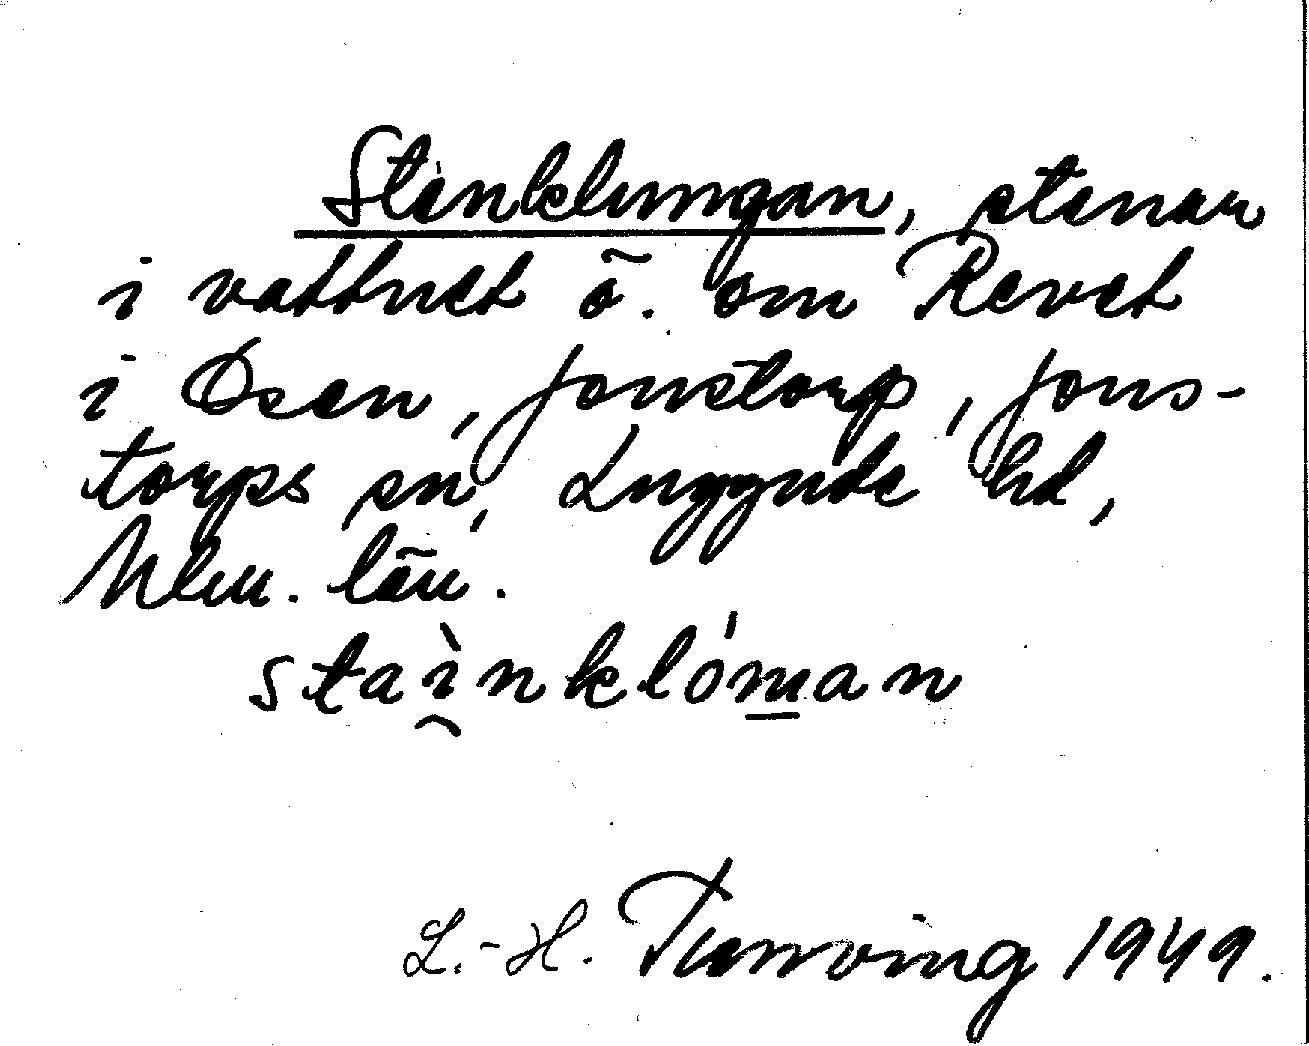 Stenklungan, stenar
i vattnet ö. om Revet
i Ösen, Jonstorp, Jons-
torps sn, Luggude hd,
Mlm. län.
staìnklo'man
L.-H. 1949.